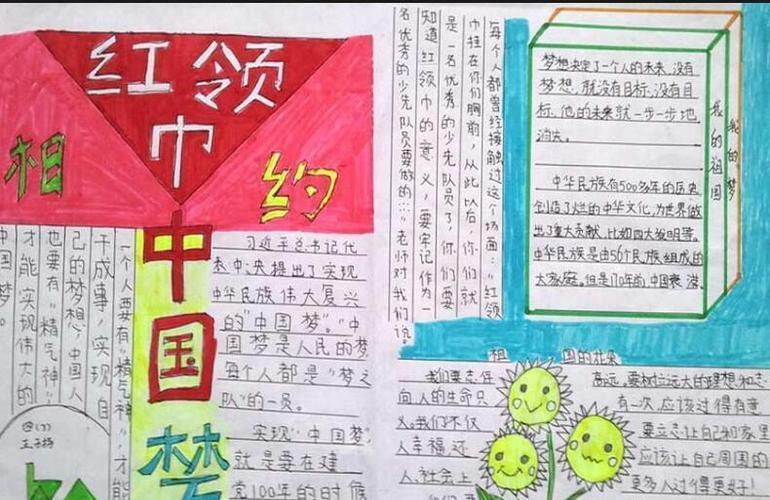 红领巾
相约
中国梦
习近平总书记代
表中央提出了实现
中华民族伟大复兴
的"中国梦"。"中
国梦是人民的梦
每个人都是"梦之
队"的一员。
实现"中国梦"
就是要在建
党100年的时候
一个人要有"精气神"才能
干成事，实现自
己的梦想，中国人
也要有"精气神"
才能实现伟大的
中国梦。
每个人都曾经接触过这个场面："红领
巾挂在你们胸前，从此以后，你们就
是一名优秀的少先队员了，你们要
知道红领巾的意义，要牢记作为一
名优秀的少先队员要做的……"老师对我们说。
梦想决定了一个人的未来，没有
梦想，就没有目标，没有目
标，他的未来就一步一步地
消失。
中华民族有500多年的历史
创造了烂的中华文化，为世界做
出了重大贡献，比如四大发明等。
中华民族是由56个民族组成的
大家庭。但是170年前，中国衰落。
我的祖国
我的梦
祖 国的花朵
我们要志存 高远，要树立远大的理想和志
向人的生命只 有一次，应该过得有意
义。我们不仅 要立志让自己和家里
人幸福还 应该让自己周围的
人、社会上 更多人过得更好！